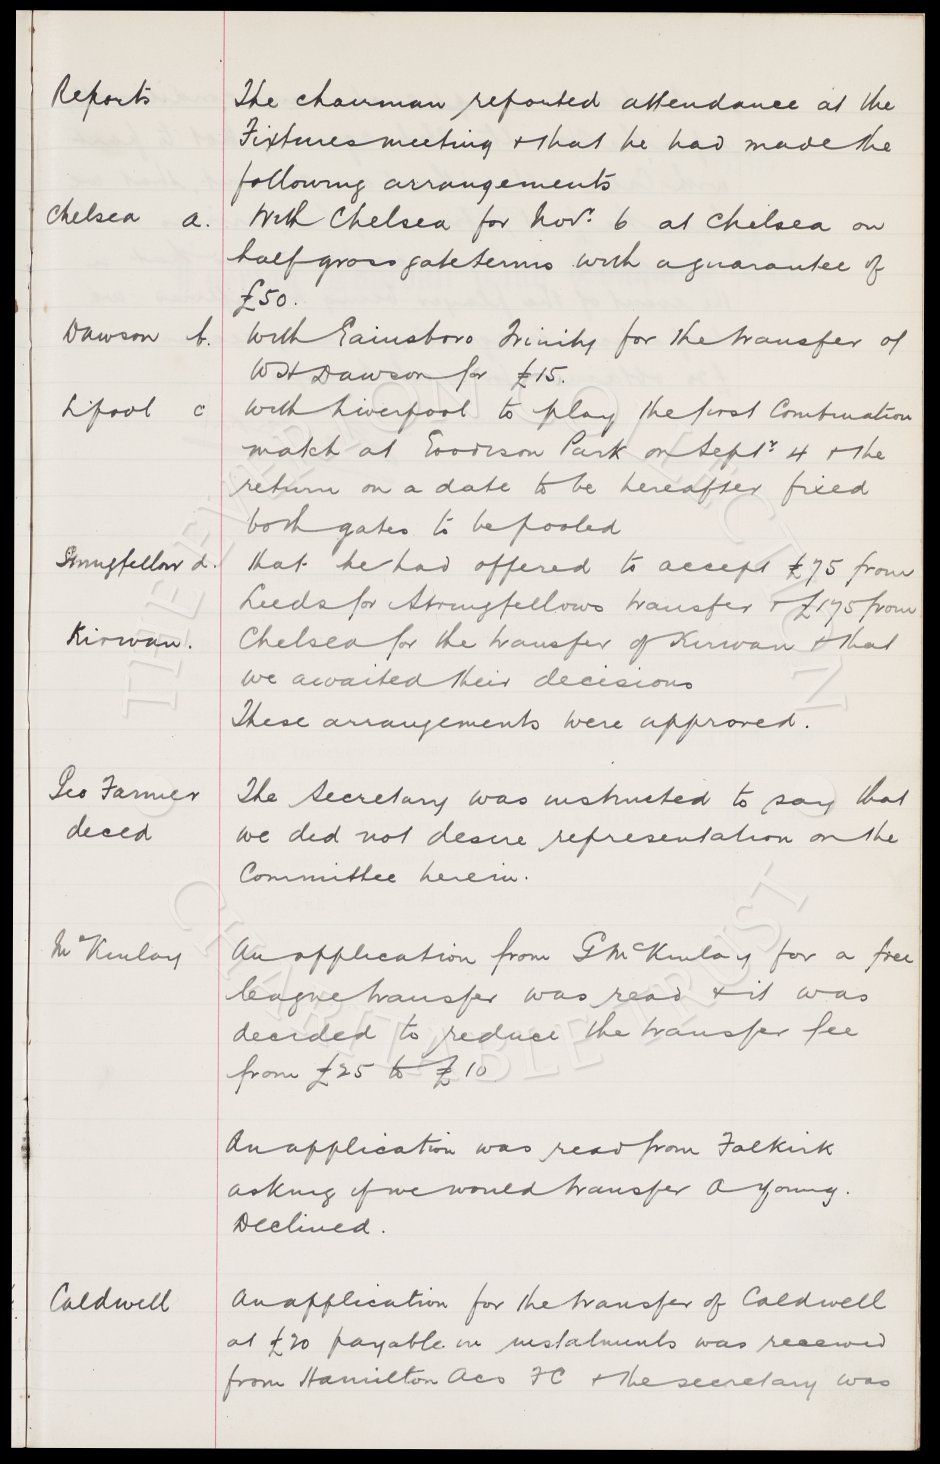 Reports The chairman reported attendance at the
Fixtures meeting & that he had made the
following arrangements
Chelsea a. With Chelsea for Novr. 6 at Chelsea on
half gross gate terms with a guarantee of
£50.
Dawson b. With Gainsboro Trinity for the transfer of
W H Dawson for £15.
L'pool c With Liverpool to play the first Combination
match at Goodison Park on Septr 4 & the
return on a date to be hereafter fixed
both gates to be pooled
Stringfellow d. that he had offered to accept £75 from
Leeds for Stringfellows transfer & £175 from
Kirwan. Chelsea for the transfer of Kirwan & that
we awaited their decisions
These arrangements were approved.
Geo Farmer The Secretary was instructed to say that
deced we did not desire representation on the
Committee herein.
McKinlay An application from G McKinlay for a free
league transfer was read & it was
decided to reduce the transfer fee
from £25 to £10
An application was read from Falkirk
asking if we would transfer A Young.
Declined.
Caldwell An application for the transfer of Caldwell
at £20 payable in instalments was received
from Hamilton Acs FC & the secretary was
THE EVERTON COLLECTION
CHARITABLE TRUST